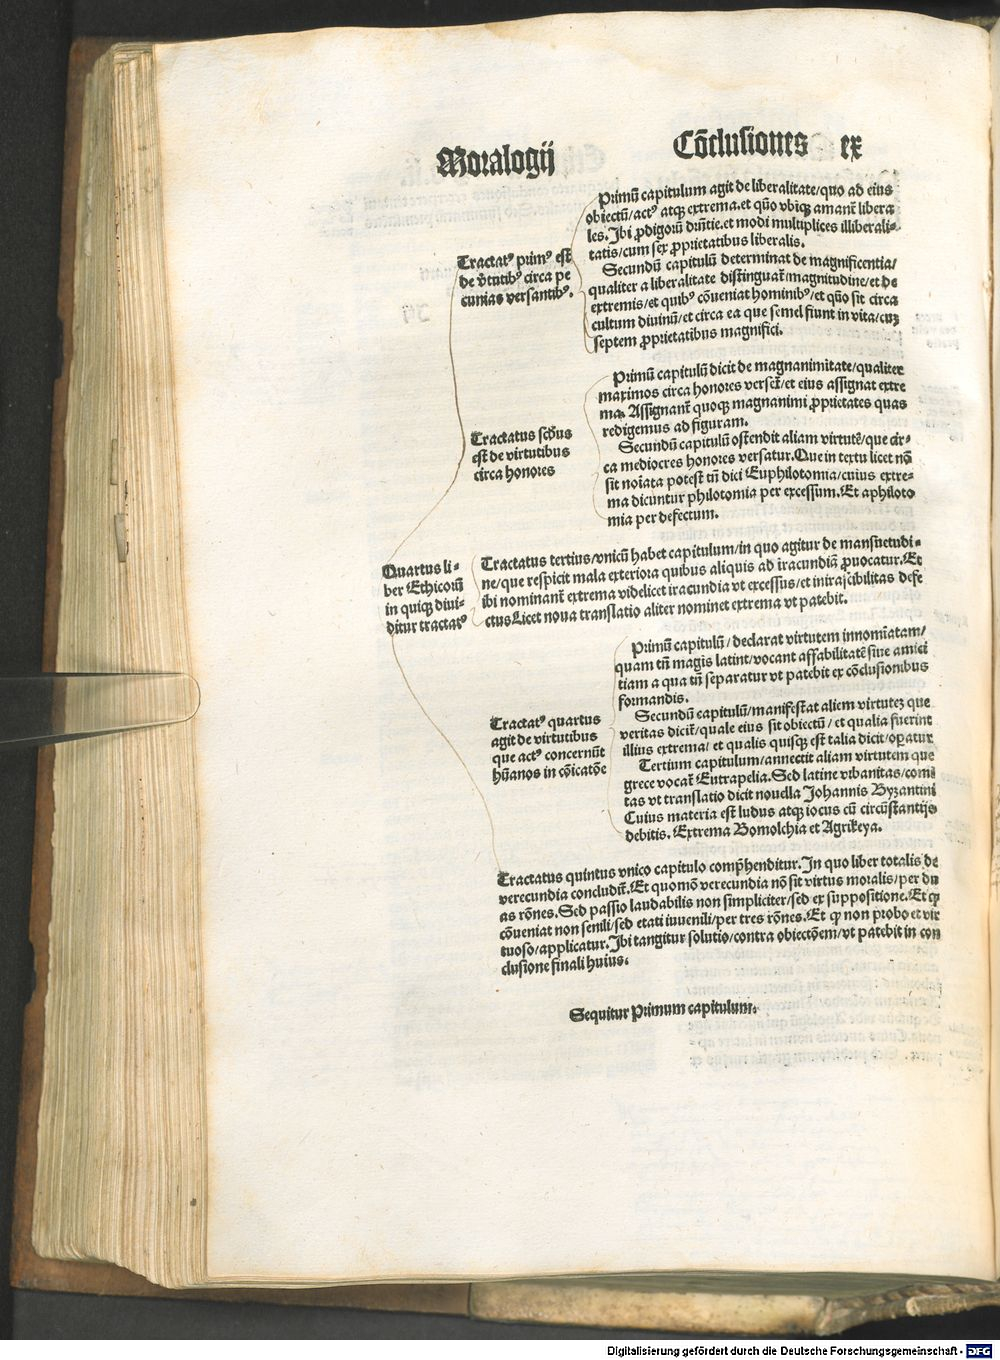 Moralogij Cōclusiones ex
Primū capitulum agit de liberalitate/quo ad eius
obiectū/actꝰ atqꝫ extrema.et qūo vbiqꝫ amanť libera
les.Ibi ꝓdigorū drn̄tie.et modi multiplices illiberali⸗
tatis/cum sex ꝓprietatibus liberalis.
Secundū capitulū determinat de magnificentia/
qualiter a liberalitate distinguať magnitudine/et de
extremis/et quibꝰ cōueniat hominibꝰ/et qūo sit circa
cultum diuinū/et circa ea que semel fiunt in vita/cuꝫ
septem ꝓprietatibus magnifici.
Tractatꝰ primꝰ est
de v̄tutibꝰ circa pe
cunias versantibꝰ.
Primū capitulū dicit de magnanimitate/qualiter
maximos circa honores verseť/et eius assignat extre
ma. Assignanť quoqꝫ magnanimi ꝓprietates quas
redigemus ad figuram.
Secundū capitulū ostendit aliam virtutē/que cir⸗
ca mediocres honores versatur.Que in textu licet nō
sit noīata potest tn̄ dici Euphilotomia/cuius extre⸗
ma dicuntur philotomia per excessum.Et aphiloto
mia per defectum.
Tractatus scd̄us
est de virtutibus
circa honores
Quartus li⸗
ber Ethicorū
in quiqꝫ diui⸗
ditur tractatꝰ
Tractatus tertius/vnicū habet capitulum/in quo agitur de mansuetudi⸗
ne/que respicit mala exteriora quibus aliquis ad iracundiā ꝓuocatur.Et
ibi nominanť extrema videlicet iracundia vt excessus/et inirascibilitas defe
ctus Licet noua translatio aliter nominet extrema vt patebit.
Primū capitulū/declarat virtutem innomīatam/
quam tn̄ magis latini/vocant affabilitatē siue amici
tiam a qua tn̄ separatur vt patebit ex cōclusionibus
formandis.
Secundū capitulū/manifestat aliem virtuteꝫ que
veritas diciť/quale eius sit obiectū/et qualia fuerint
illius extrema/et qualis quisqꝫ est talia dicit/oꝑatur
Tertium capitulum/annectit aliam virtutem que
grece vocať Eutrapelia.Sed latine vrbanitas/comi
tas vt translatio dicit nouella Johannis Byzantini
Cuius materia est ludus atqꝫ iocus cū circūstantijs
debitis. Extrema Bomolchia et Agrikeya.
Tractatꝰ quartus
agit de virtutibus
que actꝰ concernūt
hūanos in cōicatōe
Tractatus quintus vnico capitulo comp̄henditur.In quo liber totalis de
verecundia concludiť.Et quomō verecundia nō sit virtus moralis/per du
as rōnes.Sed passio laudabilis non simpliciter/sed ex suppositione.Et ꝙ
cōueniat non senili/sed etati iuuenili/per tres rōnes.Et ꝙ non probo et vir
tuoso/applicatur.Ibi tangitur solutio/contra obiectōem/vt patebit in con
clusione finali huius.
Sequitur Primum capitulum.
Digitalisierung gefördert durch die Deutsche Forschungsgemeinschaft - DFG